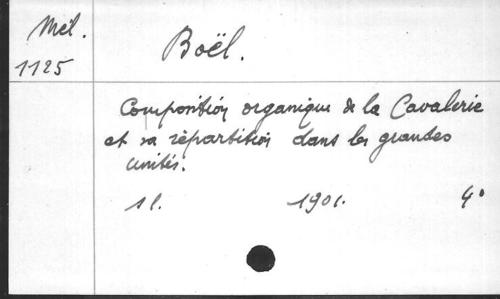 Mél.
1125
Boël.
Composition organique de la Cavalerie
et sa répartition dans les grandes
unités.
s l. 1901. 4°